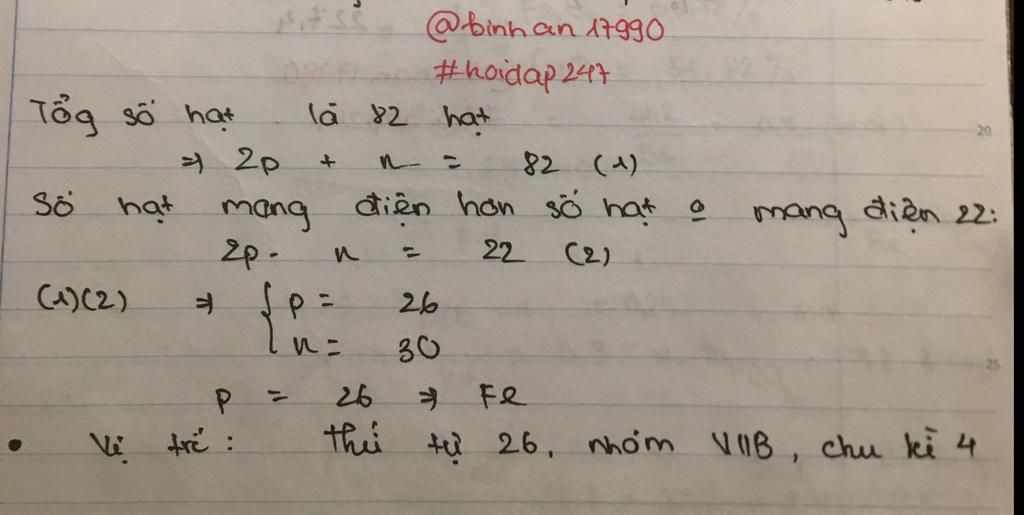 @binhan17990
#hoidap247
Tổg số hạt là 82 hạt
=> 2p + n = 82 (1)
Số hạt mang điện hơn số hạt o mang điện 22:
2p - n = 22 (2)
(1)(2) => { p = 26
n = 30
p = 26 => Fe
• Vị trí: thứ tự 26, nhóm VIIB, chu kì 4
20
25